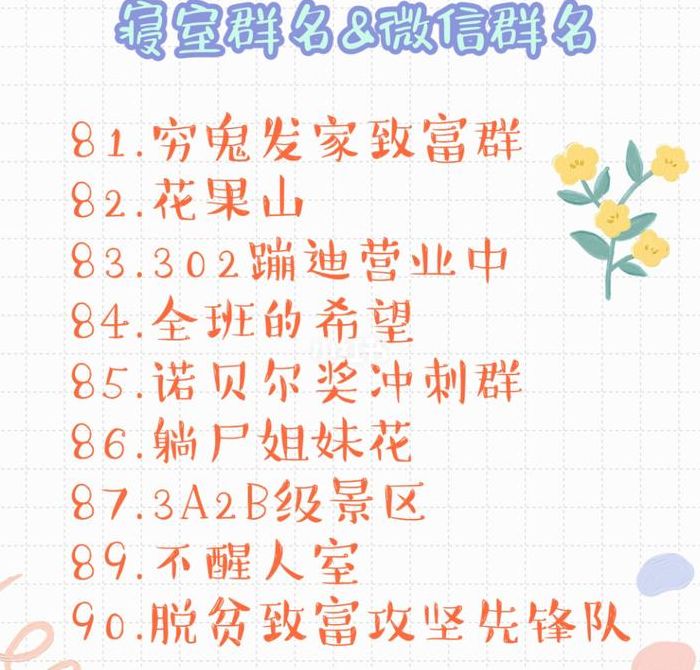 寝室群名&微信群名
81.穷鬼发家致富群
82.花果山
83.302蹦迪营业中
84.全班的希望
85.诺贝尔奖冲刺群
86.躺尸姐妹花
87.3A2B级景区
89.不醒人室
90.脱贫致富攻坚先锋队